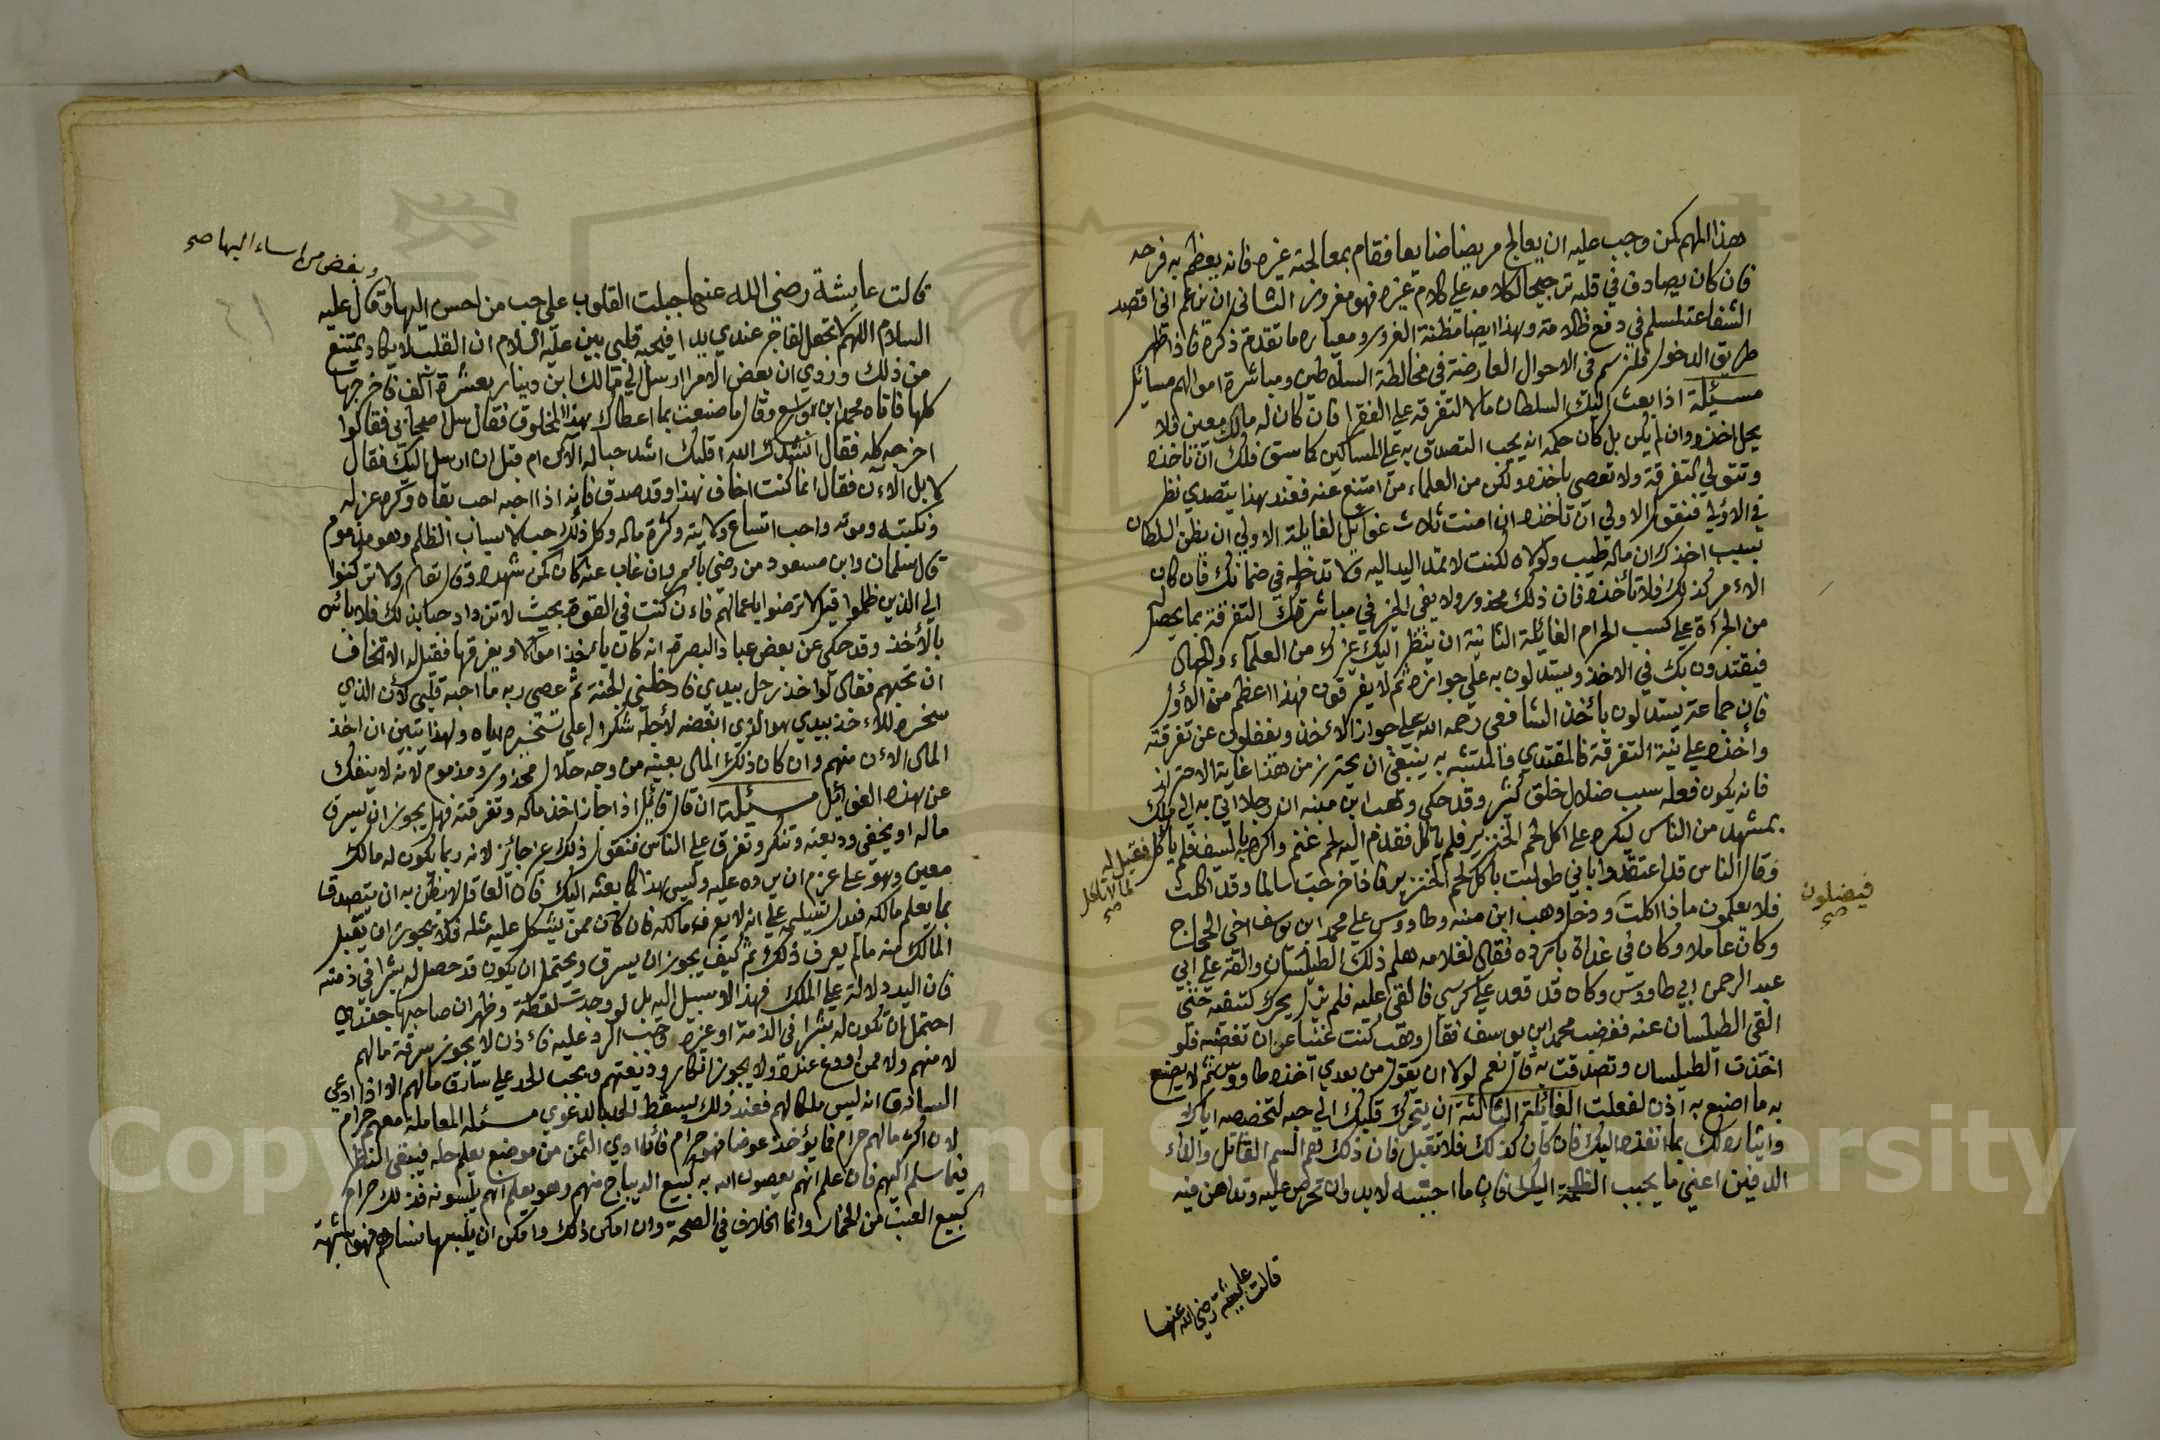 هذا المهم كمن وجب عليه ان يعالج مريضا ضايعا فقام بمعالجته غيره فانه يعظم به فرحه
فان كان يصادف في قلبه ترجيحا لكلامه علي كلام غيره فهو مغرور الثاني ان يزعم اني اقصد
الشفاعة لمسلم في دفع ظلامة وبهذا ايضا مظنة الغرور ومعياره ما تقدم ذكره فاذا ظهر
طريق الدخول فلنرسم في الاحوال العارضة في مخالطة السلاطين ومباشرة اموالهم مسائل
مسئلة اذا بعث اليك السلطان مالا لتفرقه علي الفقرا فان كان له مالك معين فلا
يحل اخذه وان لم يكن بل كان حكمه انه يجب التصدق به علي المساكين كما سبق فلك ان تاخذه
وتتولي التفرقة ولا تعصي باخذه ولكن من العلماء من امتنع عنه فعند هذا يتصدي نظر
في الاولي فنقول الاولي ان تاخذه ان امنت ثلاث غوائل الغايلة الاولي ان يظن السلطان
بسبب اخذك ان ماله طيب ولولاه لكنت لا تمد اليد اليه ولا تدخله في ضمانك فان كان
الامر كذلك فلا تأخذه فان ذلك محذور ولا يفي الخير في مباشرتك التفرقة بما يحصل له
من الجرءة علي كسب الحرام الغائلة الثانية ان ينظر اليك غيرك من العلماء والجهال
فيقتدون بك في الاخذ ويستدلون به علي جوازه ثم لا يفرقون فهذا اعظم من الأول
فان جماعة يستدلون بأخذ الشافعي رحمه الله علي جواز الاخذ ويغفلون عن تفرقته
وأخذه علي نية التفرقة فالمقتدي والمتشبه به ينبغي ان يحترز من هذا غاية الاحتراز
فانه يكون فعله سبب ضلال خلق كثير وقد حكي وهب ابن منبه ان رجلا اتي به الي ملك
بمشهد من الناس ليكره علي اكل لحم الخنزير فلم ياكل فقدم اليه لحم غنم واكره بالسيف فلم يأكل
فقيل له
لم لا تأكل
صح
فقال ان الناس قد اعتقدوا باني طولبت باكل لحم الخنزير فاذا خرجت سالما وقد اكلت
فلا يعلمون ماذا اكلت ودخل وهب ابن منبه وطاووس علي محمد ابن يوسف اخي الحجاج
فيضلون
صح
وكان عاملا وكان في غداة باردة فقال لغلامه هلم ذلك الطيلسان والقه علي ابي
عبد الرحمن ابي طاووس وكان قد قعد علي كرسي فالقي عليه فلم يزل يحرك كتفيه حتي
القي الطيلسان عنه فغضب محمد ابن يوسف فقال وهب كنت غنيا عن ان تغضبه فلو
اخذت الطيلسان وتصدقت به قال نعم لولا ان يقول من بعدي اخذه طاووس ثم لا يصنع
به ما اصنع به اذن لفعلت الغايلة الثالثة ان يتحرك قلبك الي حبه لتخصيصه اياك
وايثاره لك بما انفذه اليك فان كان كذلك فلا تقبل فان ذلك هو السم القاتل والداء
الدفين اعني ما يحبب الظلمة اليك فان ما احببته لا بد وان تحرص عليه وتداهن فيه
قالت عايشة رضي الله عنها
قالت عايشة رضي الله عنها جبلت القلوب علي حب من احسن اليها وقال عليه
وبغض من اساء اليها صح
السلام اللهم لا تجعل لفاجر عندي يدا فيحبه قلبي بين عليه السلام ان القلب لا يكاد يمتنع
من ذلك وروي ان بعض الامرا ارسل الي مالك ابن دينار بعشرة الف فاخرجها
كلها فاتاه محمد ابن واسع وقال ما صنعت بما اعطاك هذا المخلوق فقال سل اصحابي فقالوا
اخرجه كله فقال انشدك الله اقلبك اشد حبا له الآن ام قبل ان ارسل اليك فقال
لا بل الآن فقال انما كنت اخاف هذا وقد صدق فانه اذا احبه احب بقاه وكره عزله
ونكبته وموته واحب اتساع ولايته وكثرة ماله وكل ذلك حب لاسباب الظلم وهو مذموم
قال سلمان وابن مسعود من رضي بأمر وان غاب عنه كان كمن شهده وقال تعالي ولا تركنوا
الي الذين ظلموا قيل لا ترضوا باعمالهم فان كنت في القوة بحيث لا تزداد حبا بذلك فلا بأس
بالأخذ وقد حكي عن بعض عباد البصرة انه كان ياخذ اموالا ويفرقها فقيل له الا تخاف
ان تحبهم فقال لو اخذ رجل بيدي فادخلني الجنة ثم عصي ربه ما احبه قلبي لان الذي
سخره للاخذ بيدي هو الذي ابغضه لأجله شكرا له علي تسخيره اياه وبهذا يتبين ان اخذ
المال الان منهم وان كان ذلك المال بعينه من وجه حلال محذور ومذموم لانه لا ينفك
عن هذه الغوائيل مسئيلة ان قال قائل اذا جاز اخذ ماله وتفرقته فهل يجوز ان يسرق
ماله او يخفي وديعته وتنكر وتفرق علي الناس فنقول ذلك غير جائز لانه ربما يكون له مالك
معين وهو علي عزم ان يرده عليه وليس هذا كما بعثه اليك فان العاقل لا يظن به ان يتصدق
بما يعلم مالكه فيدل تسليمه علي انه لا يعرف مالكه فان كان ممن يشكل عليه مثله فلا يجوز ان يقبل
المالك منه ما لم يعرف ذلك ثم كيف يجوز ان يسرق ويحتمل ان يكون قد حصل له بشرا في ذمته
فان اليد دلالة علي الملك فهذا لا سبيل اليه بل لو وجدت لقطة وظهر ان صاحبها جندي
احتمل ان تكون له بشرا في الذمة او غيره وجب الرد عليه فاذن لا يجوز سرقة مالهم
لا منهم ولا ممن اودع عنده ولا يجوز انكار وديعتهم ويجب الحد علي سارق مالهم الا اذا ادعي
السارق انه ليس ملكا لهم فعند ذلك يسقط الحد بالدعوي مسئلة المعاملة معهم حرام
لان اكثر مالهم حرام فما يؤخذ عوضا فهو حرام فان ادي الثمن من موضع يعلم حله فيبقي النظر
فيما سلم اليهم فان علم انهم يعصون الله به كبيع الديباج منهم وهو يعلم انهم يلبسونه فذلك حرام
كبيع العنب من الخمار وانما الخلاف في الصحة وان امكن ذلك وامكن ان يلبسها نساؤهم فهو شبهة